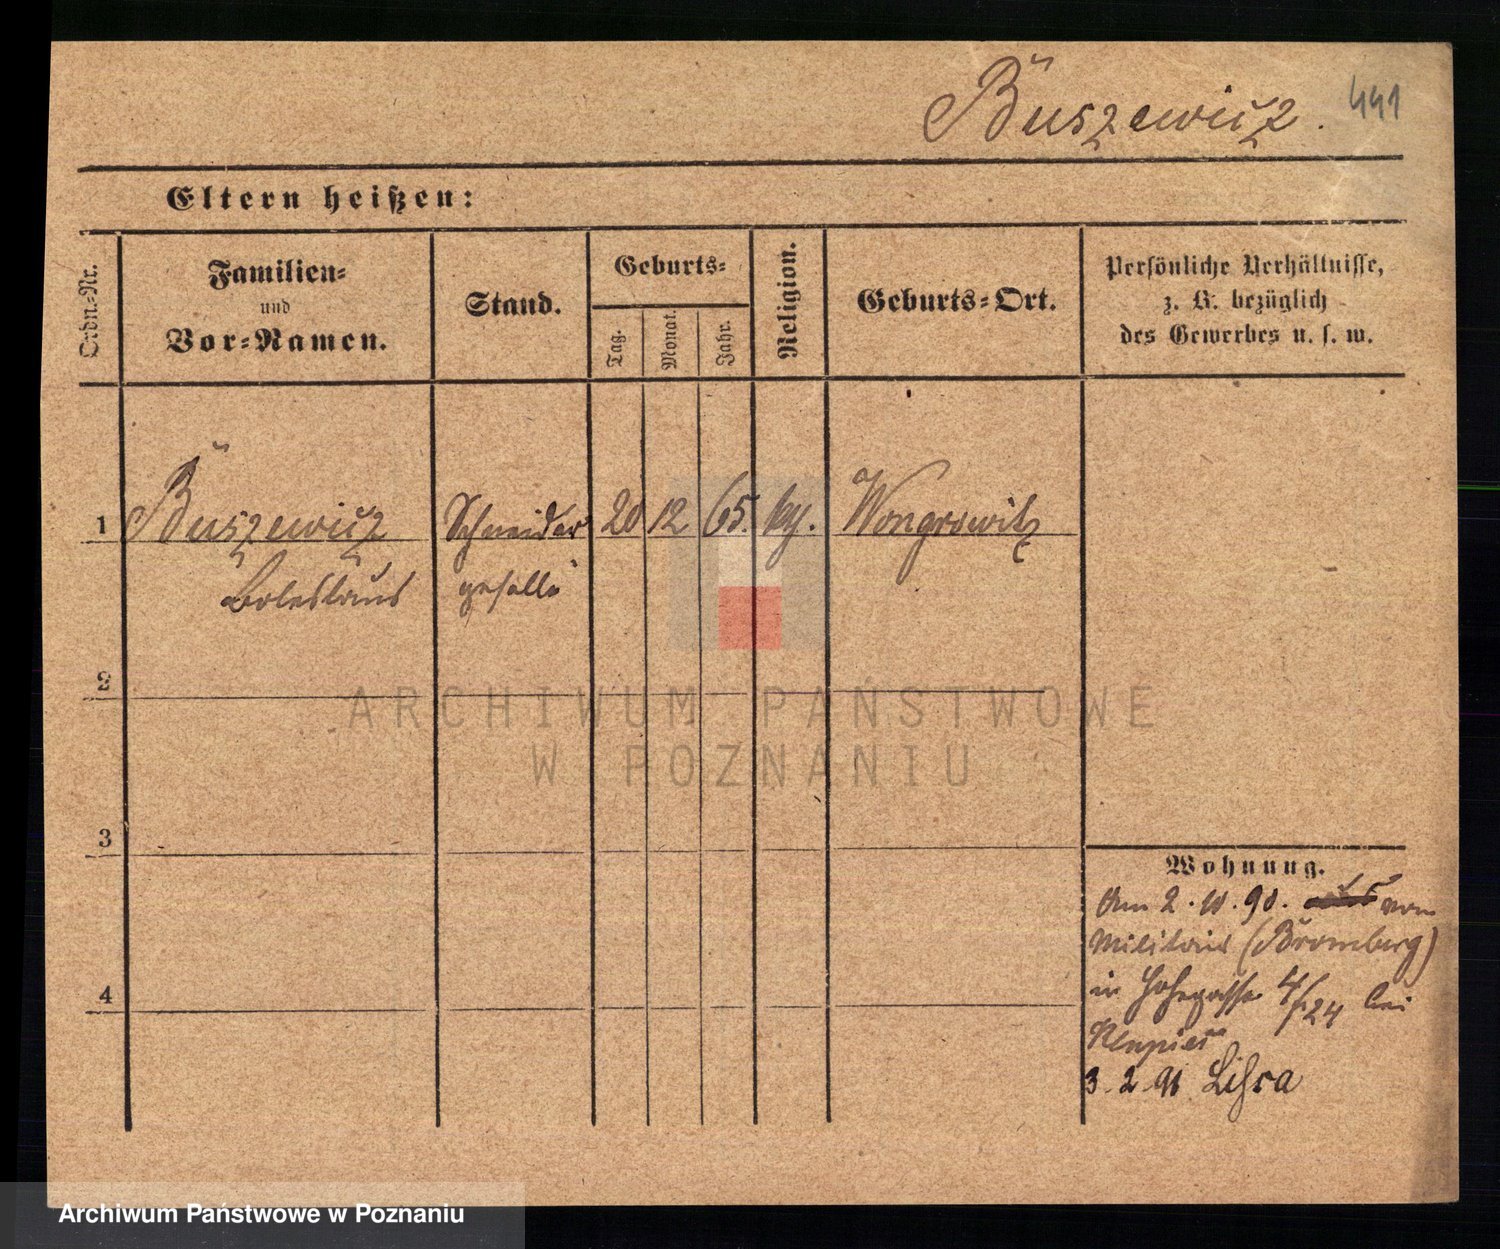 Buszewicz. 441
Eltern heißen:
Ordn.-Nr.
Familien-
und
Vor-Namen.
Stand.
Geburts-
Tag.
Monat.
Jahr.
Religion.
Geburts-Ort.
Persönliche Verhältnisse,
z. B. bezüglich
des Gewerbes u. s. w.
1 Buszewicz Schneider 20 12 65. Wongrowitz
Boleslaus geselle
2
ARCHIWUM PAŃSTWOWE
W POZNANIU
3
4
Wohnung.
Am 2. 10. 90. vom
Militair (Bromberg)
in 4/24 bei
3. 2. 91 Lissa
Archiwum Państwowe w Poznaniu